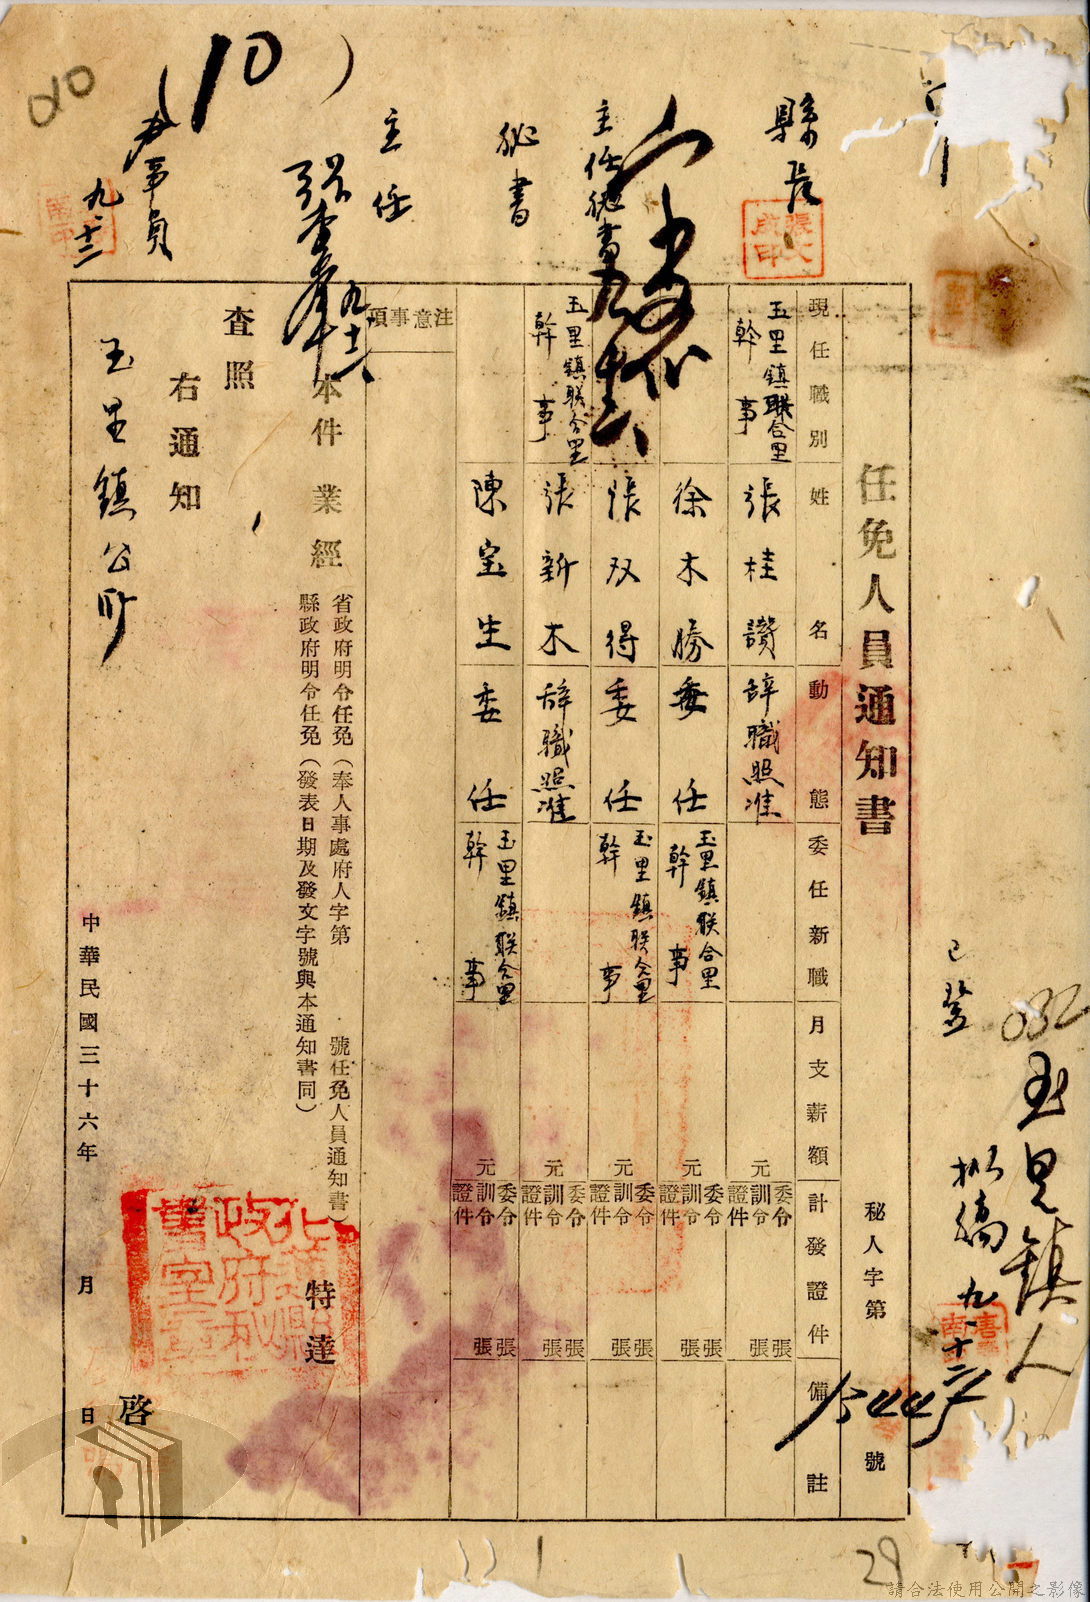 玉里鎮人
已登
拟稿 九、十二
任免人員通知書
秘人字第 15447 號
現任職別 姓名 動態 委任新職 月支薪額 計發證件 備註
玉里鎮联合里幹事 張桂讃 辞職照准 元 委令 訓令 證件 張 張
徐木勝 委任 玉里鎮联合里幹事 元 委令 訓令 證件 張 張
張双得 委任 玉里鎮联合里幹事 元 委令 訓令 證件 張 張
玉里鎮联合里幹事 張新木 辞職照准 元 委令 訓令 證件 張 張
陳宝生 委任 玉里鎮联合里幹事 元 委令 訓令 證件 張 張
注意事項
本件業經
省政府明令任免(奉人事處府人字第 號任免人員通知書)
縣政府明令任免(發表日期及發文字號與本通知書同)
特達
查照
右通知
玉里鎮公所
啓
中華民國三十六年 月 日
縣長
張文成印
主任秘書
秘書
主任
九、十二
事員
九、十二
(10)
010
032
29
請合法使用公開之影像